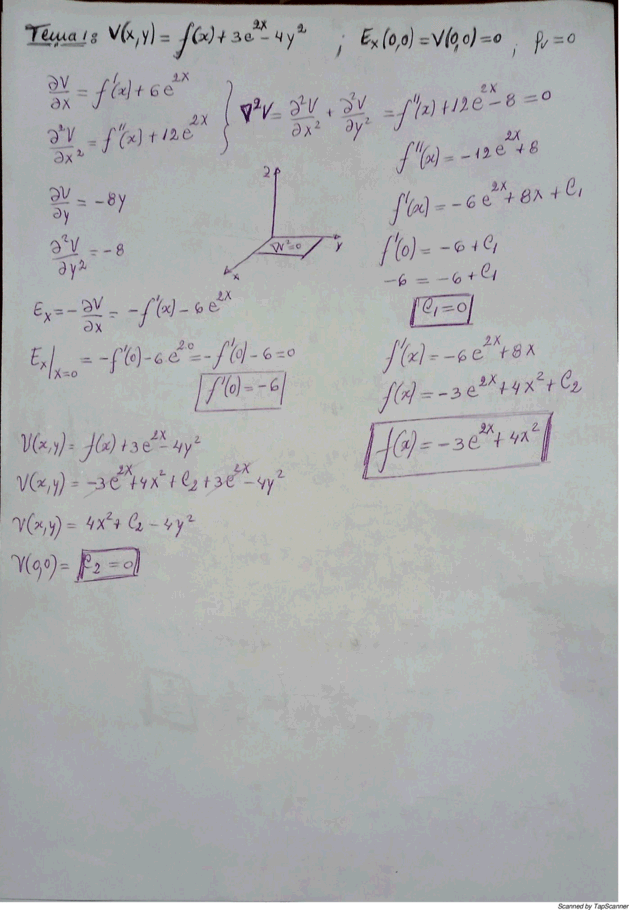 Тема 1: V(x,y) = f(x) + 3e^{2x} - 4y² ; E_x(0,0) = V(0,0) = 0 ; ρ_v = 0
∂V/∂x = f'(x) + 6e^{2x}
∂²V/∂x² = f''(x) + 12e^{2x}
∇²V = ∂²V/∂x² + ∂²V/∂y² = f''(x) + 12e^{2x} - 8 = 0
∂V/∂y = -8y
∂²V/∂y² = -8
z
y
x
E_x = -∂V/∂x = -f'(x) - 6e^{2x}
E_x|_{x=0} = -f'(0) - 6e^{2·0} = -f'(0) - 6 = 0
f'(0) = -6
f''(x) = -12e^{2x} + 8
f'(x) = -6e^{2x} + 8x + C₁
f'(0) = -6 + C₁
-6 = -6 + C₁
C₁ = 0
f'(x) = -6e^{2x} + 8x
f(x) = -3e^{2x} + 4x² + C₂
f(x) = -3e^{2x} + 4x²
V(x,y) = f(x) + 3e^{2x} - 4y²
V(x,y) = -3e^{2x} + 4x² + C₂ + 3e^{2x} - 4y²
V(x,y) = 4x² + C₂ - 4y²
V(0,0) = C₂ = 0
Scanned by TapScanner